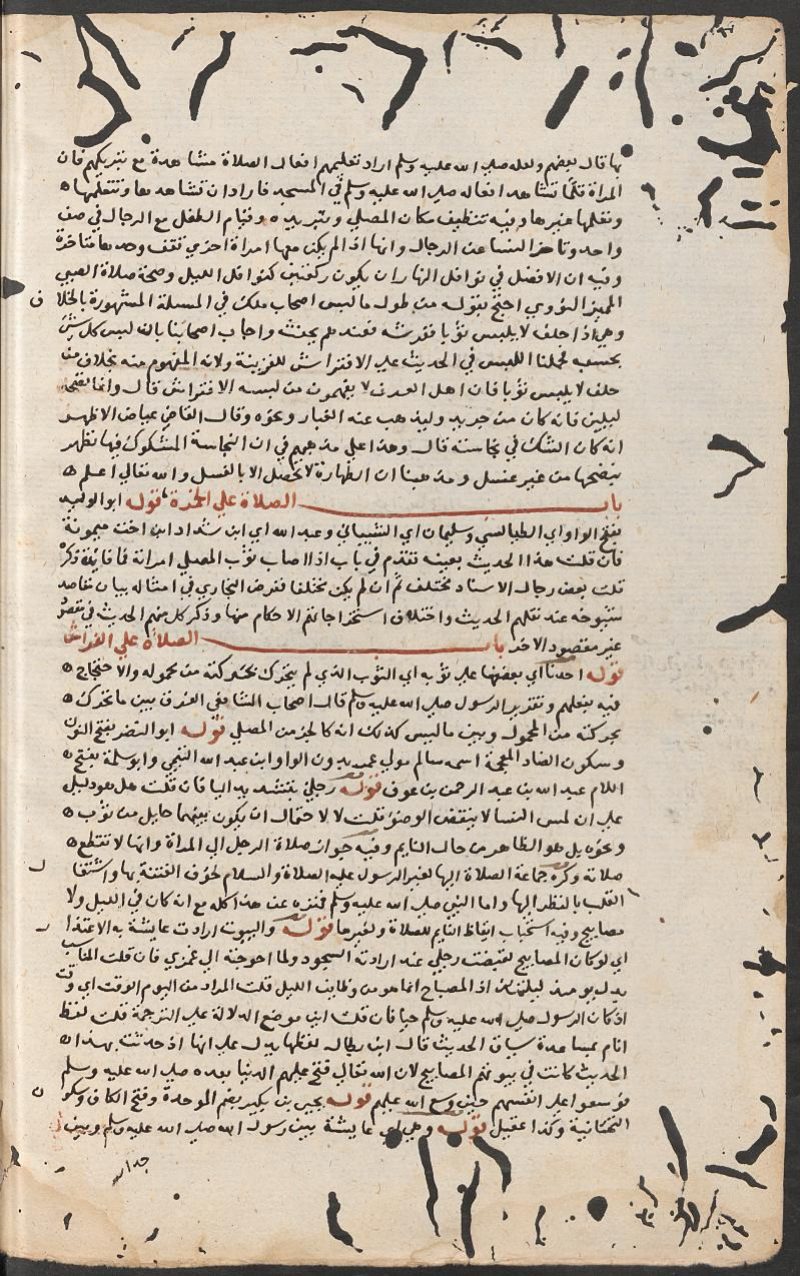 بها قال بعضهم ولعله صلى الله عليه وسلم اراد تعليمهم افعال الصلاة مشاهدة مع تبريكهم فان
المراة قلما تشاهد افعاله صلى الله عليه وسلم في المسجد فاراد ان تشاهدها وتتعلمها
وتعلمها غيرها وفيه تنظيف مكان المصلي وتبريده وقيام الطفل مع الرجال في صف
واحد وتاخر النسا عن الرجال وانها اذا لم يكن معها امراة اخري تقف وحدها متاخرة
وفيه ان الافضل في نوافل النهار ان يكون ركعتين كنوافل الليل وصحة صلاة الصبي
المميز النووي احتج بقوله من طول ما لبس اصحاب ملك في المسيلة المشهورة بالخلاف
وهي اذا حلف لا يلبس ثوبا ففرشه فعندهم يحنث واجاب اصحابنا بان لبس كل شي
بحسبه فحملنا اللبس في الحديث علي الافتراش للقرينة ولانه المفهوم منه بخلاف من
حلف لا يلبس ثوبا فان اهل العرف لا يفهمون من لبسه الافتراش قال وانما نضحه
ليلين فانه كان من جريد وليذهب عنه الغبار ونحوه وقال القاضي عياض الاظهر
انه كان الشك في نجاسته قال وهذا علي مذهبهم في ان النجاسة المشكوك فيها تطهر
بنضحها من غير غسل ومذهبنا ان الطهارة لا تحصل الا بالغسل والله تعالي اعلم
باب الصلاة علي الخمرة قوله ابو الوليد
بفتح الواو اي الطيالسي وسليمان اي الشيباني وعبد الله اي ابن شداد ابن اخت ميمونة
فان قلت هذا الحديث بعينه تقدم في باب اذا اصاب ثوب المصلي امراته فما فايدة ذكره
قلت بعض رجال الاسناد مختلف ثم ان لم يكن مختلفا فغرض البخاري في امثاله بيان مقاصد
شيوخه عند نقلهم الحديث واختلاف استخراجاتهم الاحكام منها وذكر كل منهم الحديث في مقصود
غير مقصود الاخر باب الصلاة علي الفراش
قوله احدنا اي بعضنا علي ثوبه اي الثوب الذي لم يتحرك بحركته من محموله والاحتجاج
فيه بفعلهم وتقرير الرسول صلى الله عليه وسلم قال اصحاب الشافعي الفرق بين ما تحرك
بحركته من المحمول وبين ما ليس كذلك انه كالجز من المصلي قوله ابو النضر بفتح النون
وسكون الضاد المعجمة اسمه سالم مولي عمر بدون الواو ابن عبد الله التيمي وابو سلمة بفتح
اللام عبد الله بن عبد الرحمن بن عوف قوله رجلي بتشديد اليا فان قلت هل هو دليل
علي ان لمس النسا لا ينقض الوضوء قلت لا لاحتمال ان يكون بينهما حايل من ثوب
ونحوه بل هو الظاهر من حال النايم وفيه جواز صلاة الرجل الي المراة وانها لا تقطع
صلاته وكره جماعة الصلاة اليها لغير الرسول عليه الصلاة والسلام لخوف الفتنة بها واشتغال
القلب بالنظر اليها واما النبي صلى الله عليه وسلم فمنزه عن هذا كله مع انه كان في الليل ولا
مصابيح وفيه استحباب ايقاظ النايم للصلاة ولغيرها قوله والبيوت ارادت عايشة به الاعتذار
اي لو كان المصابيح لقبضت رجلي عند ارادته السجود ولما احوجته الي غمزي فان قلت المناسب
بدل يوميذ ليلتئذ اذ المصباح انما هو من وظايف الليل قلت المراد من اليوم الوقت اي وقت
اذ كان الرسول صلى الله عليه وسلم حيا فان قلت اين موضع الدلالة علي الترجمة قلت لفظ
انام بمساعدة سياق الحديث قال ابن بطال لفظها يدل علي انها اذ حدثت بهذا
الحديث كانت في بيوتهم المصابيح لان الله تعالي فتح عليهم الدنيا بعده صلى الله عليه وسلم
فوسعوا علي انفسهم حين وسع الله عليهم قوله يحيي بن بكير بضم الموحدة وفتح الكاف وسكون
التحتانية وكذا عقيل قوله وهي اي عايشة بين رسول الله صلى الله عليه وسلم وبين